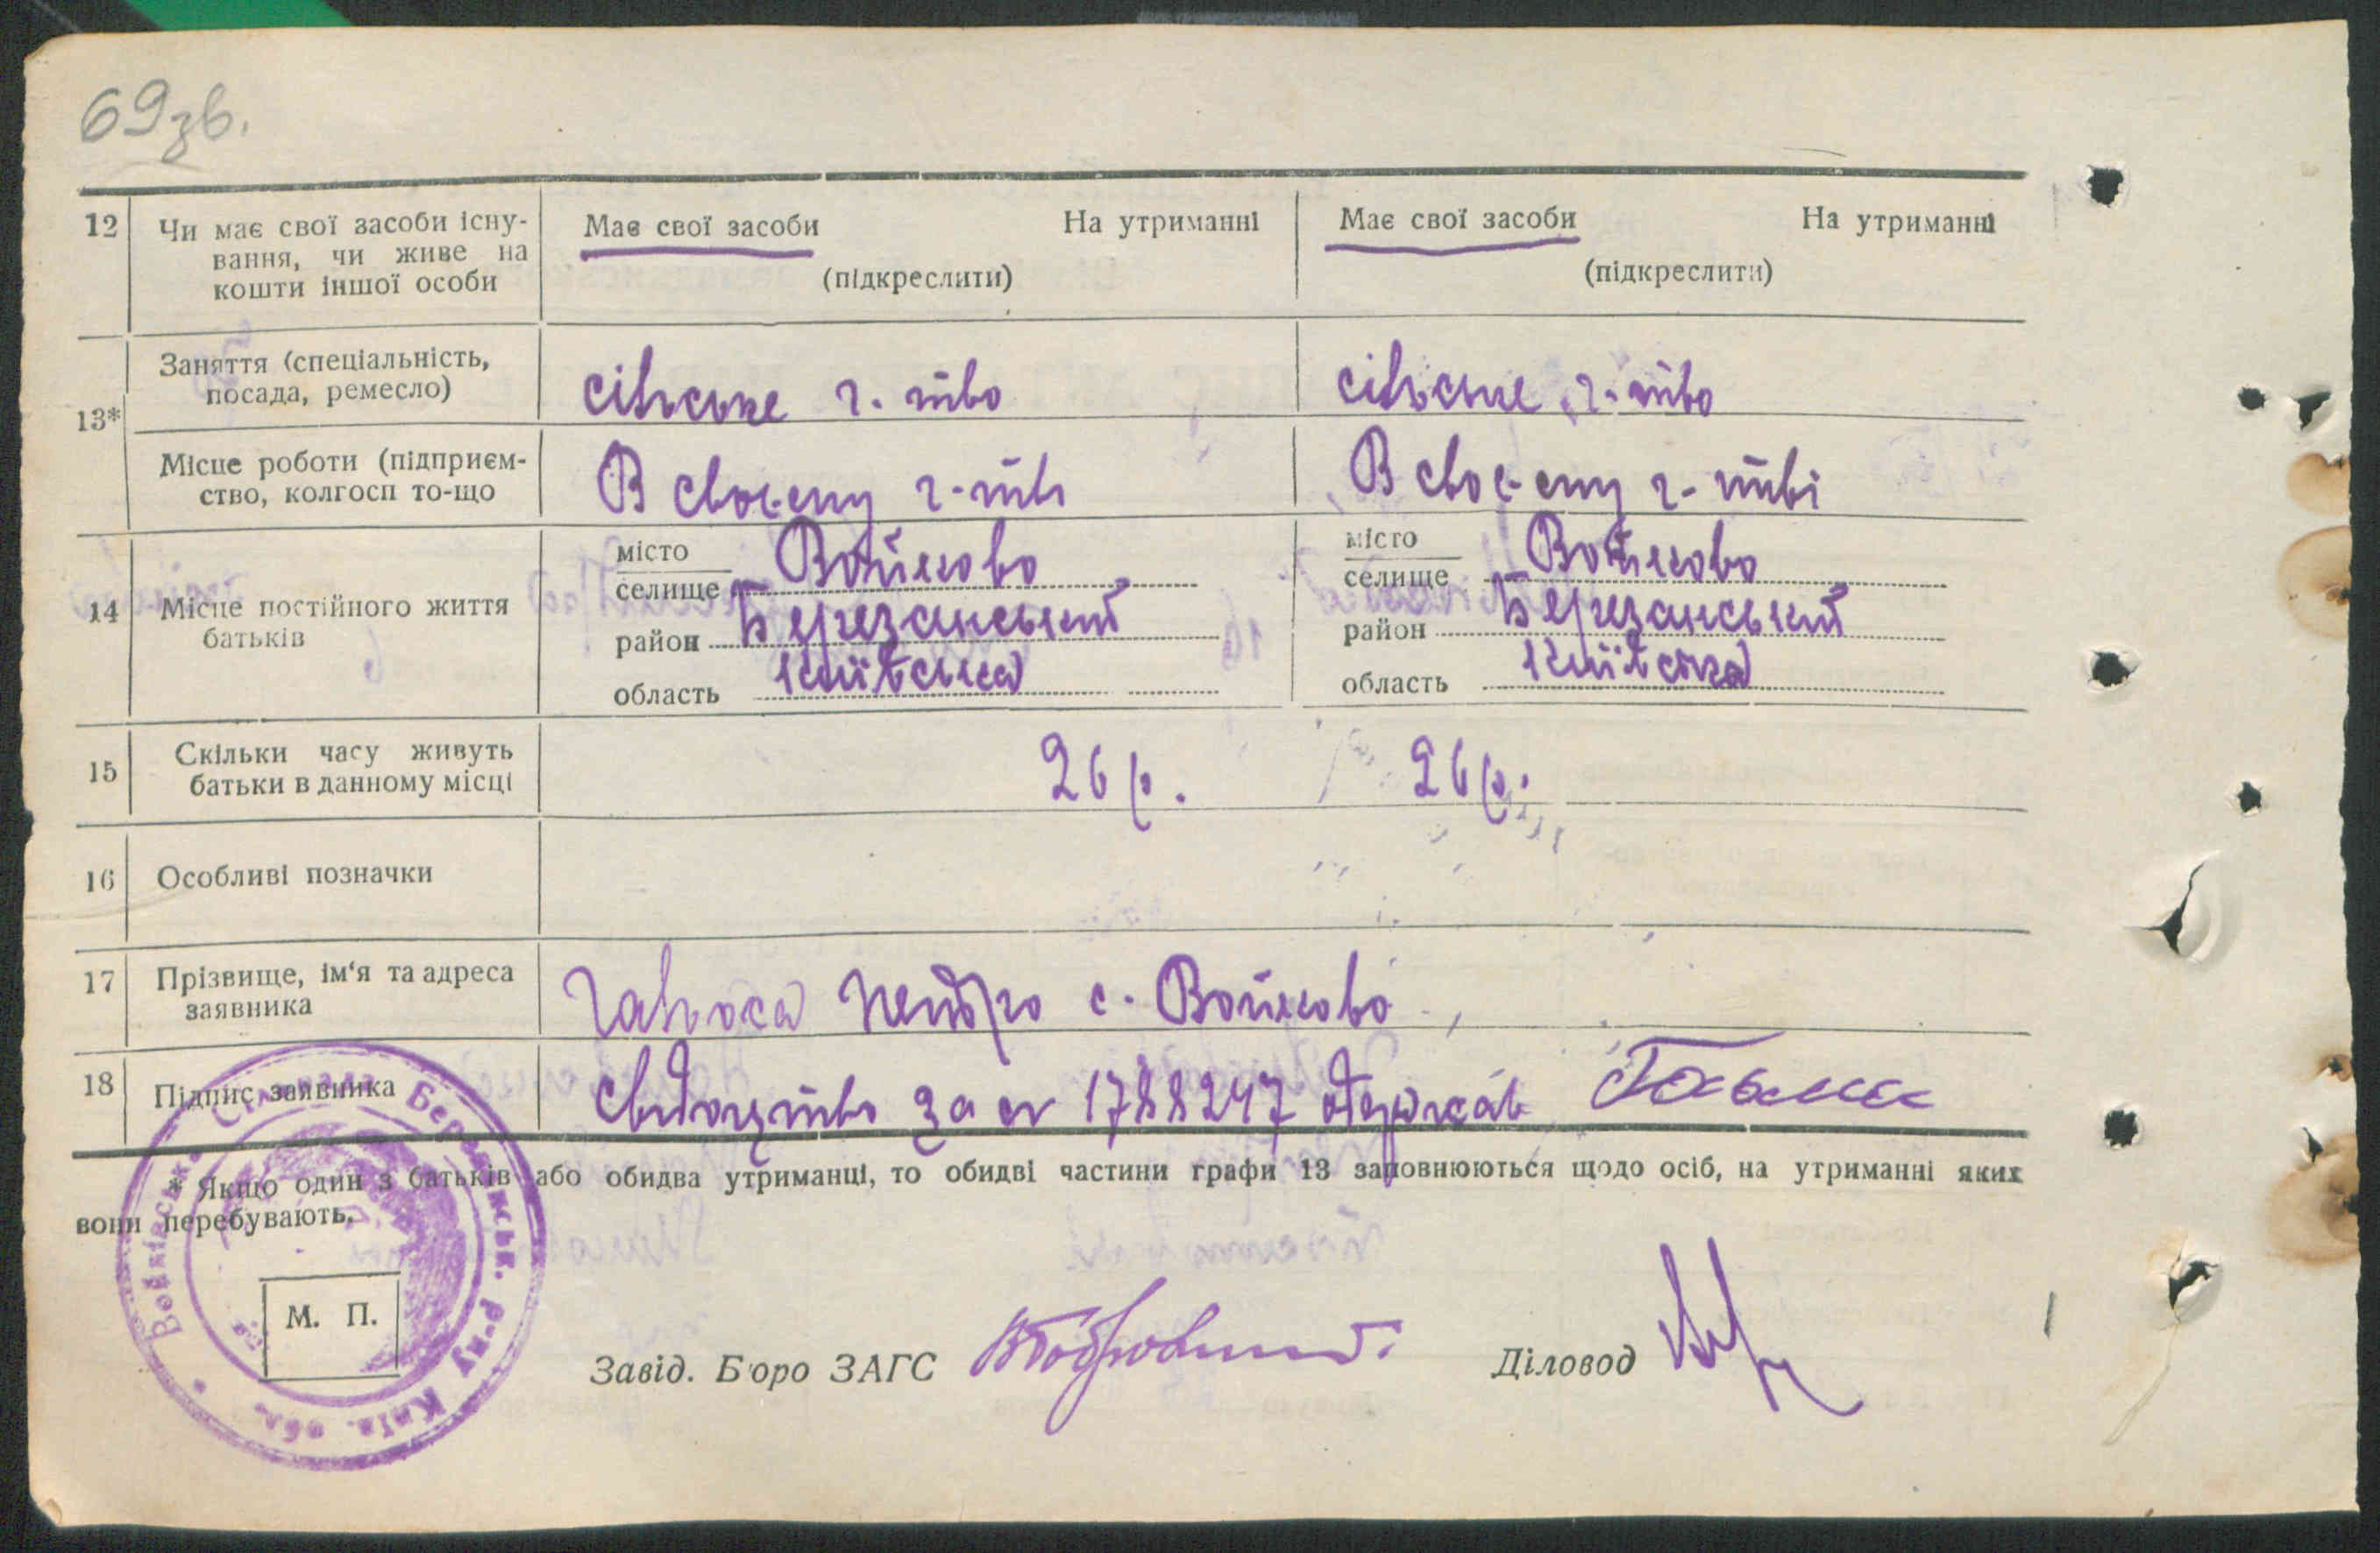 69 зв.
12 Чи має свої засоби існу- Має свої засоби На утриманні Має свої засоби На утриманні
вання, чи живе на (підкреслити) (підкреслити)
кошти іншої особи
13* Заняття (спеціальність, посада, ремесло) сільське г. тво сільське г. тво
Місце роботи (підприєм- В своєму г-тві В своєму г-тві
ство, колгосп то-що
14 Місце постійного життя батьків
місто селище Войково місто селище Войково
район Березанський район Березанський
область Київська область Київська
15 Скільки часу живуть 26 р. 26 р.
батьки в данному місці
16 Особливі позначки
17 Прізвище, ім'я та адреса Петро с. Войково
заявника
18 Підпис заявника свідоцтво за № 1788247 одержав
* Якщо один з батьків або обидва утриманці, то обидві частини графи 13 заповнюються щодо осіб, на утриманні яких
вони перебувають.
Войківська Березанськ. р-ну Київ. обл.
М. П.
Завід. Бюро ЗАГС Діловод